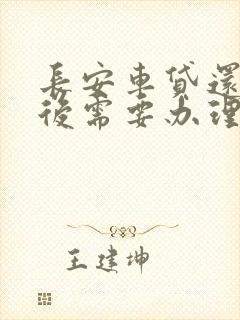 長安車貸還
後需要办理
王建坤